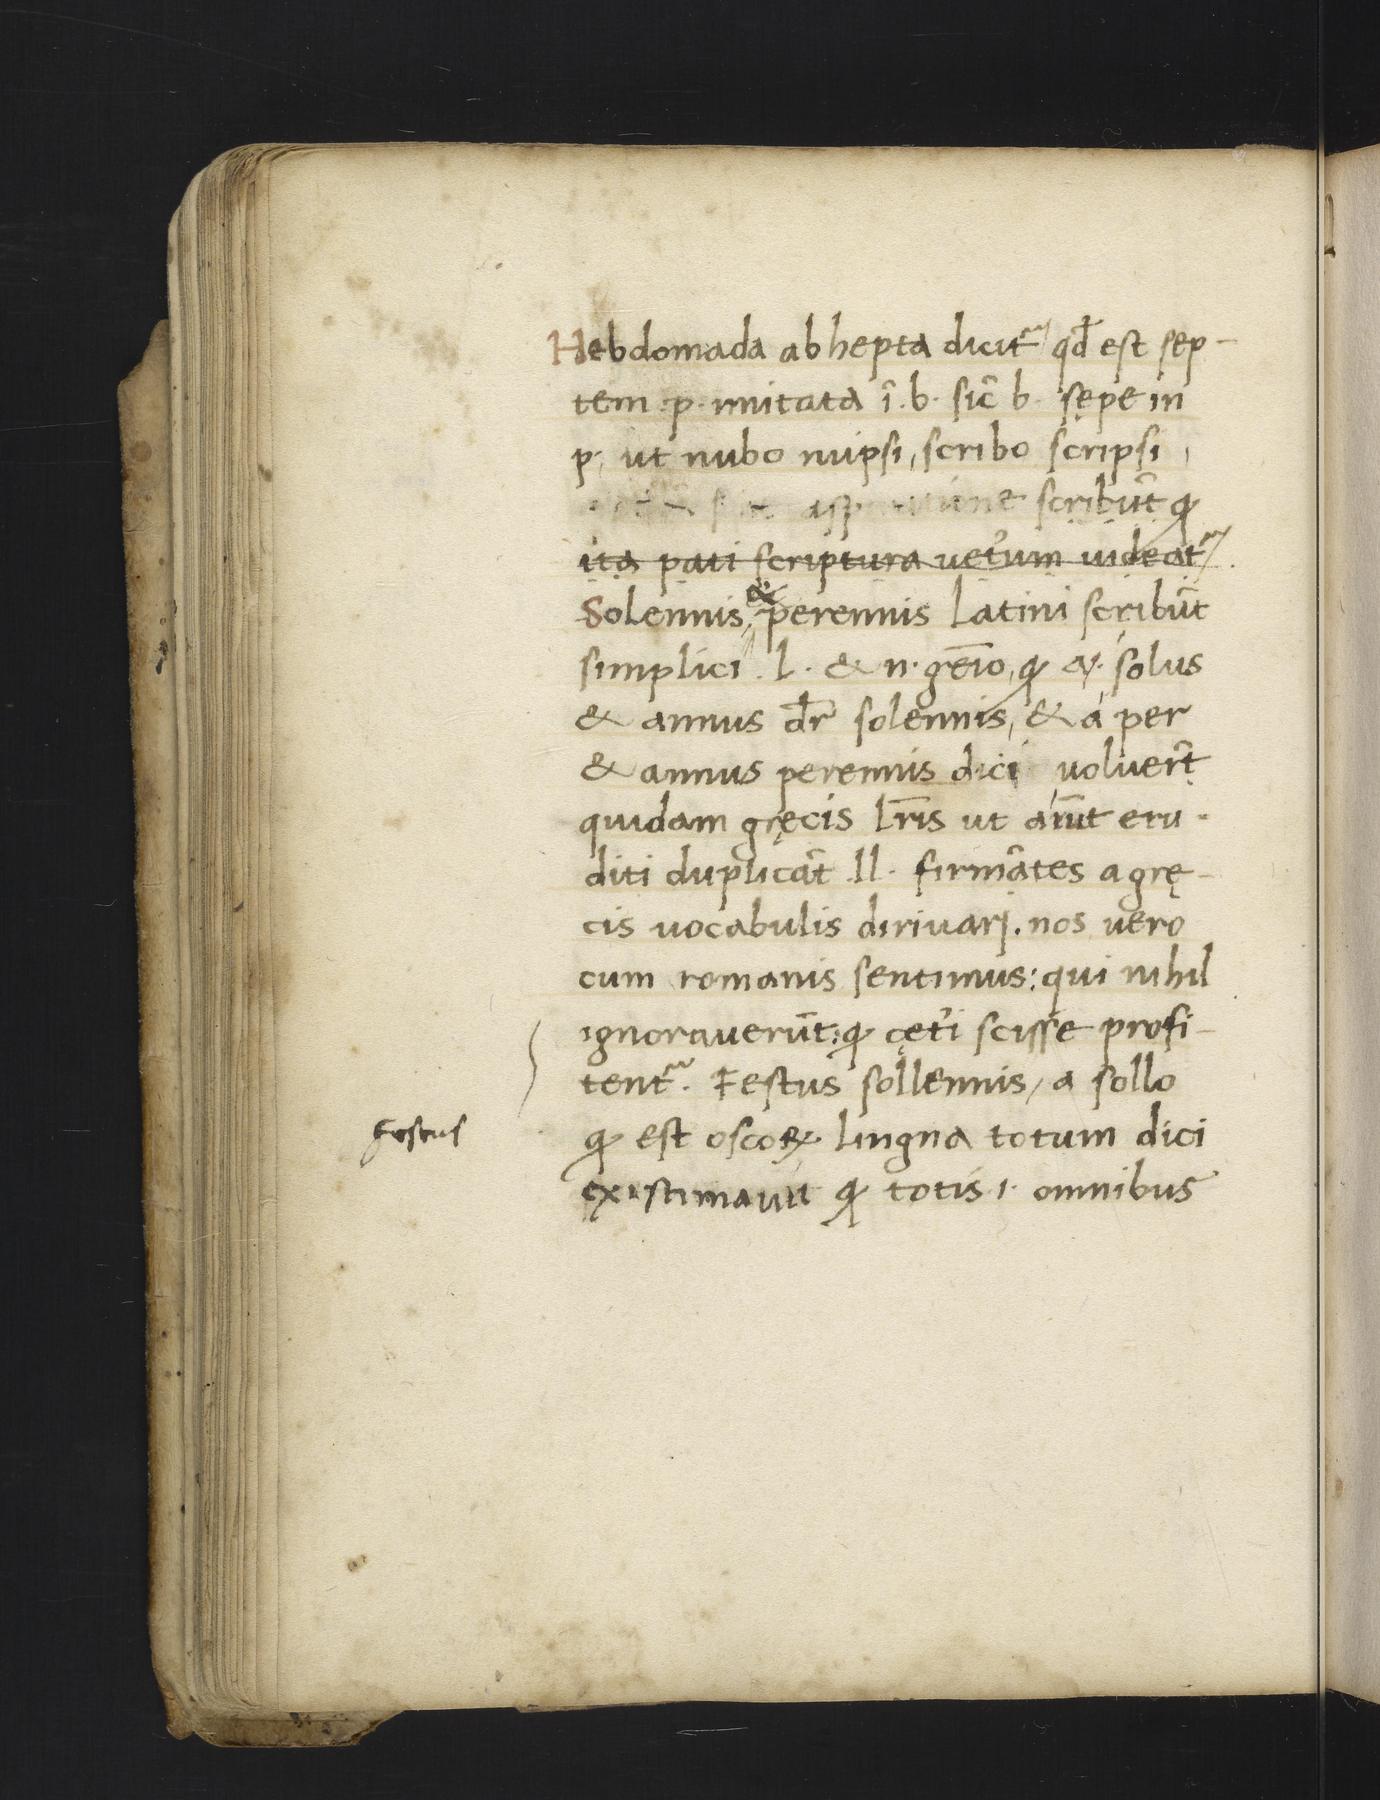 Hebdomada ab hepta dicit᷑ qđ est sep-
tem p· mutata ī .b. sic̄ b. sępe in
p. ut nubo nupsi, scribo scripsi
scribūt ꝙ
ita pati scriptura vet̓um videat᷑
Solennis, & perennis Latini scribūt
simplici .l. & n. ꝙ a solus
& annus dr̄ solennis, & a per
& annus perennis dici voluerūt
quidam gręcis lr̄is ut aiūt eru-
diti duplicāt .ll. firmātes a grę-
cis vocabulis dirivari. nos vero
cum romanis sentimus: qui nihil
ignoraverūt: ꝙ cęt̓i scisse profi-
tent᷑. Festus sollennis, a sollo
Festus
ꝙ est oscoꝝ lingua totum dici
existimavit ꝙ totis .i. omnibus